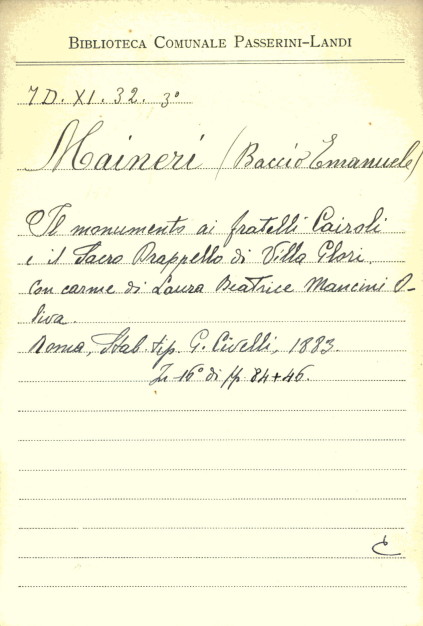 BIBLIOTECA COMUNALE PASSERINI-LANDI
7 D. XI. 32. 3º
Maineri (Baccio Emanuele)
Il monumento ai fratelli Cairoli
e il Sacro Drappello di Villa Glori.
con carme di Laura Beatrice Mancini O-
liva.
Roma, Stab. tip. G. Civelli, 1883.
In 16º di pp. 84+46.